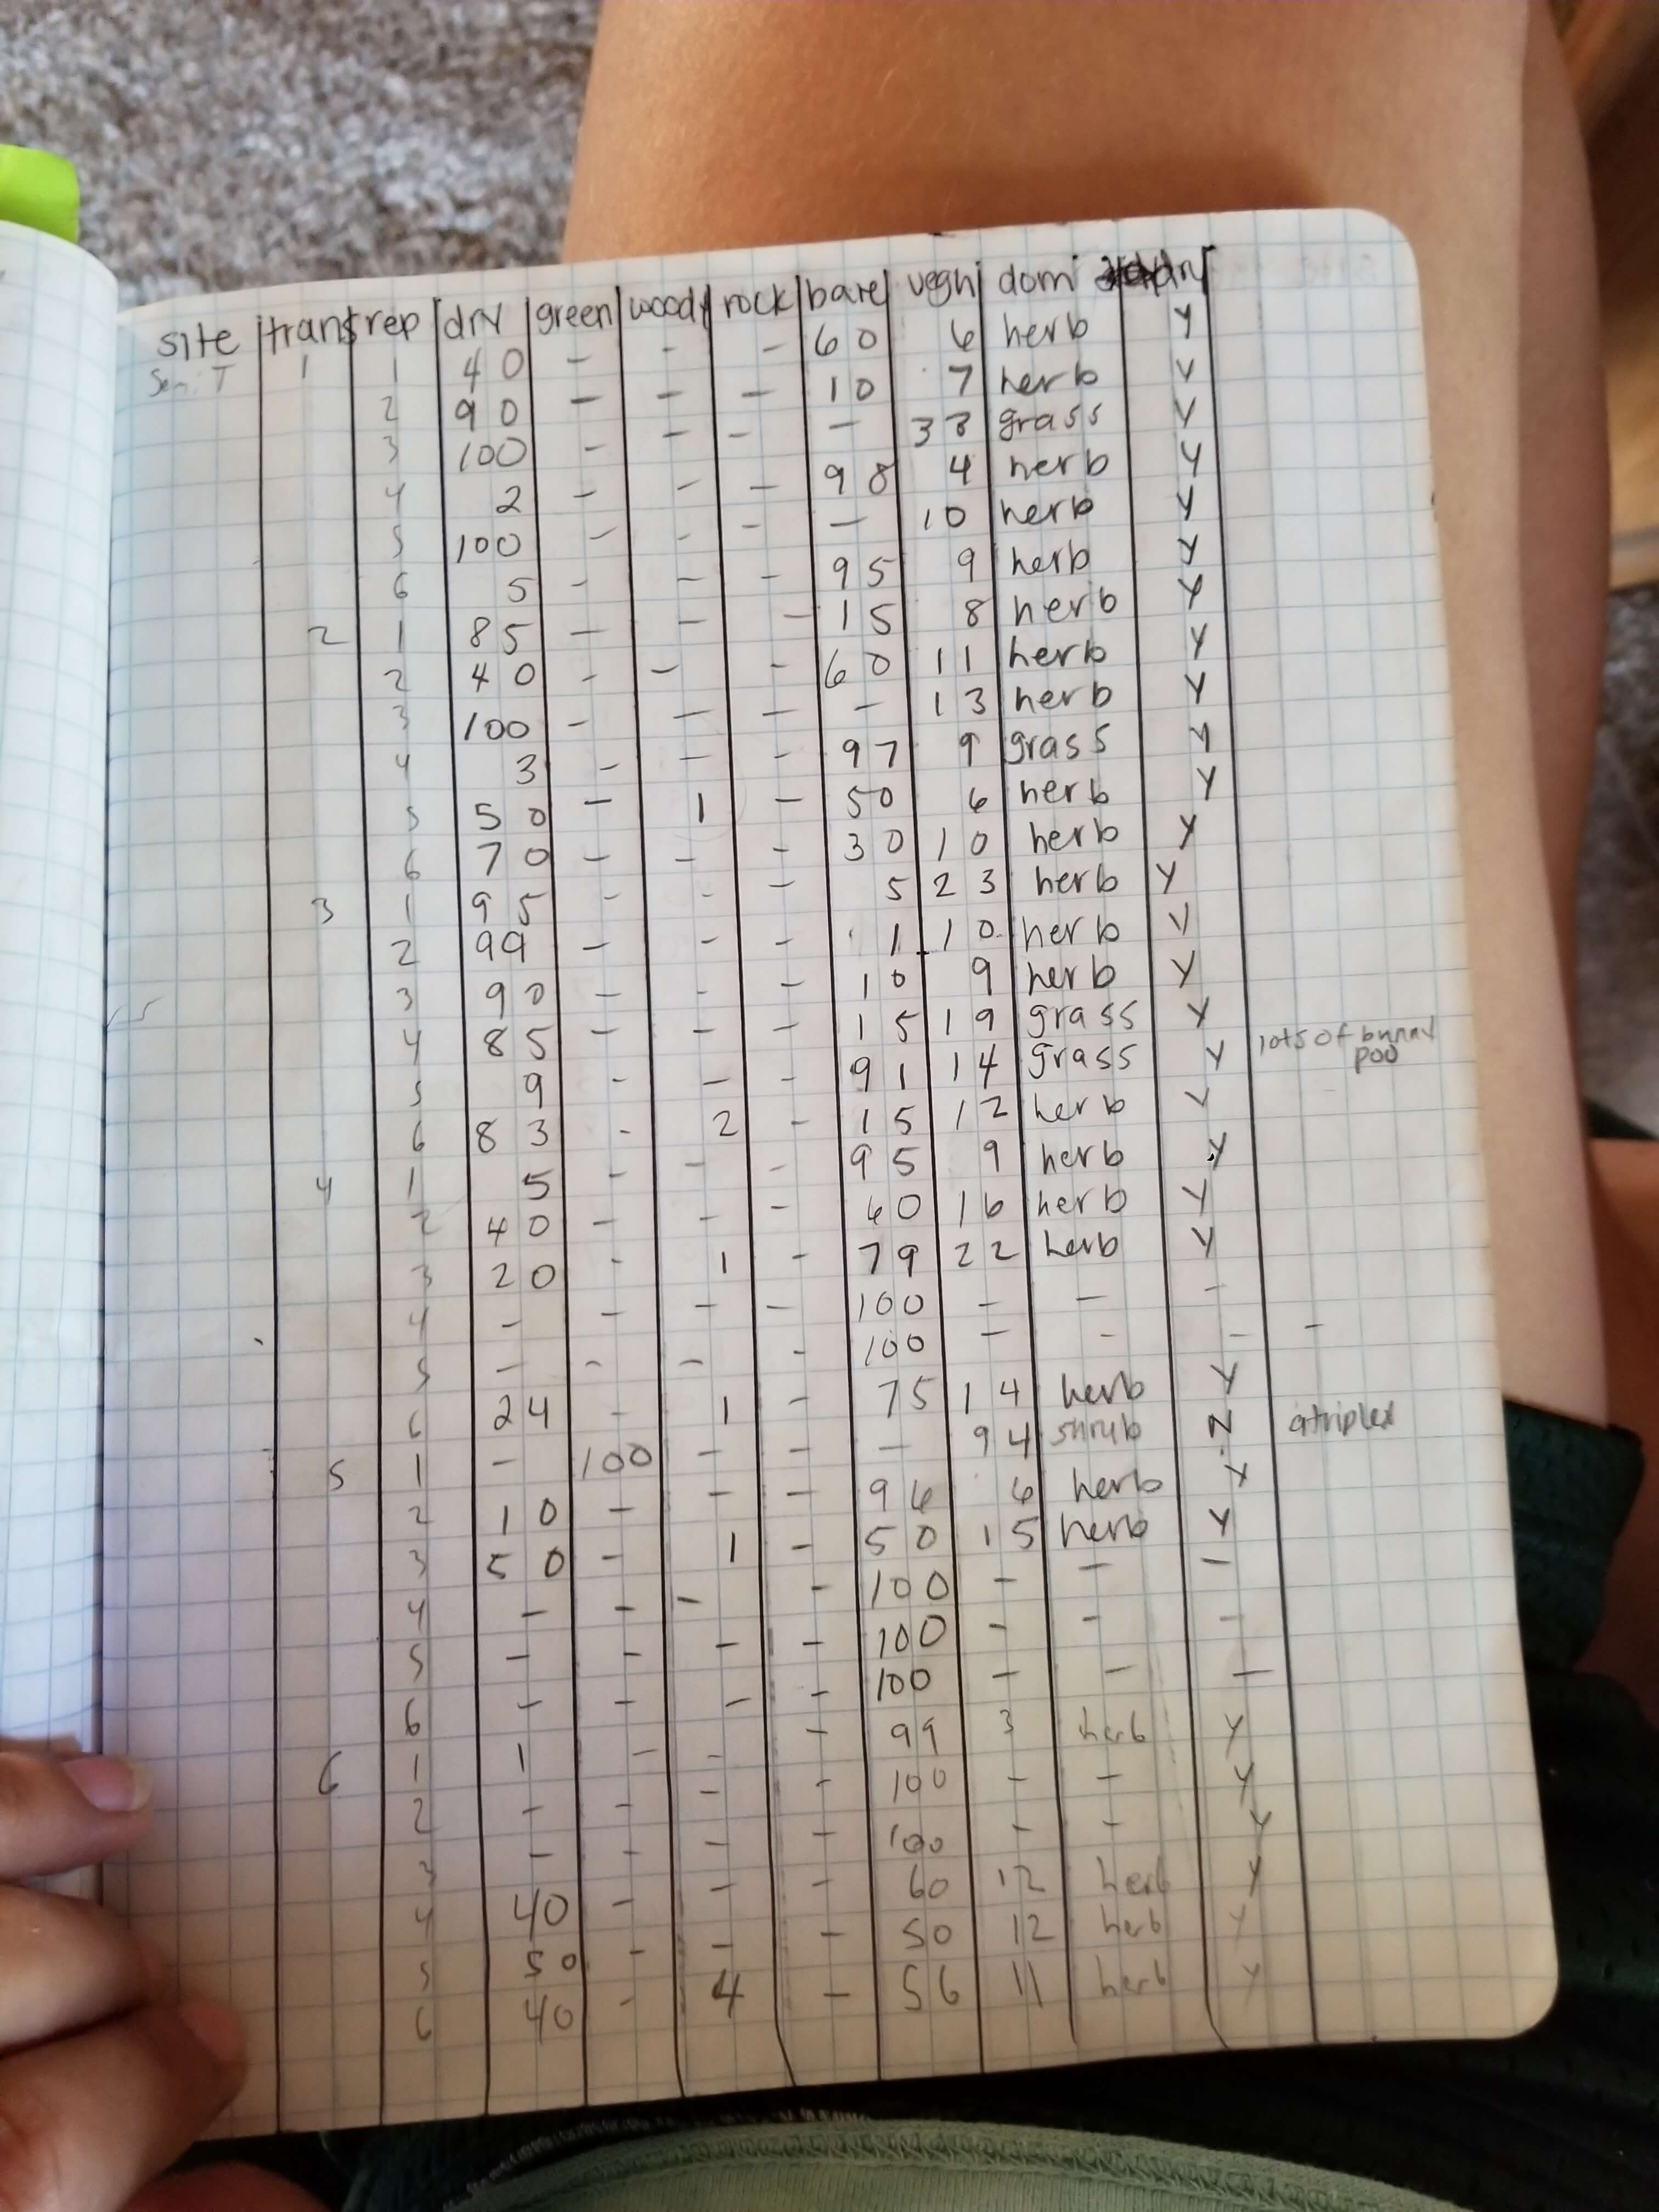 site trans rep dry green woody rock bare vegh domi dry
Semi T 1 1 40 - - - 60 6 herb Y
2 90 - - - 10 7 herb Y
3 100 - - - - 33 grass Y
4 2 - - - 98 4 herb Y
5 100 - - - - 10 herb Y
6 5 - - - 95 9 herb Y
2 1 85 - - - 15 8 herb Y
2 40 - - - 60 11 herb Y
3 100 - - - - 13 herb Y
4 3 - - - 97 9 grass Y
5 50 - 1 - 50 6 herb Y
6 70 - - - 30 10 herb Y
3 1 95 - - - 5 23 herb Y
2 99 - - - 1 10 herb Y
3 90 - - - 10 9 herb Y
4 85 - - - 15 19 grass Y
5 9 - - - 91 14 grass Y lots of bunny poo
6 83 - 2 - 15 12 herb Y
4 1 5 - - - 95 9 herb Y
2 40 - - - 60 16 herb Y
3 20 - 1 - 79 22 herb Y
4 - - - - 100 - - -
5 - - - - 100 - - - -
6 24 - 1 - 75 14 herb Y
5 1 - 100 - - - 94 shrub N atriplex
2 10 - - - 96 6 herb Y
3 50 - 1 - 50 15 herb Y
4 - - - - 100 - - -
5 - - - - 100 - - -
6 - - - - 100 - - -
6 1 1 - - - 99 3 herb Y
2 - - - - 100 - - Y
3 - - - - 100 - - Y
4 40 - - - 60 12 herb Y
5 50 - - - 50 12 herb Y
6 40 - 4 - 56 11 herb Y